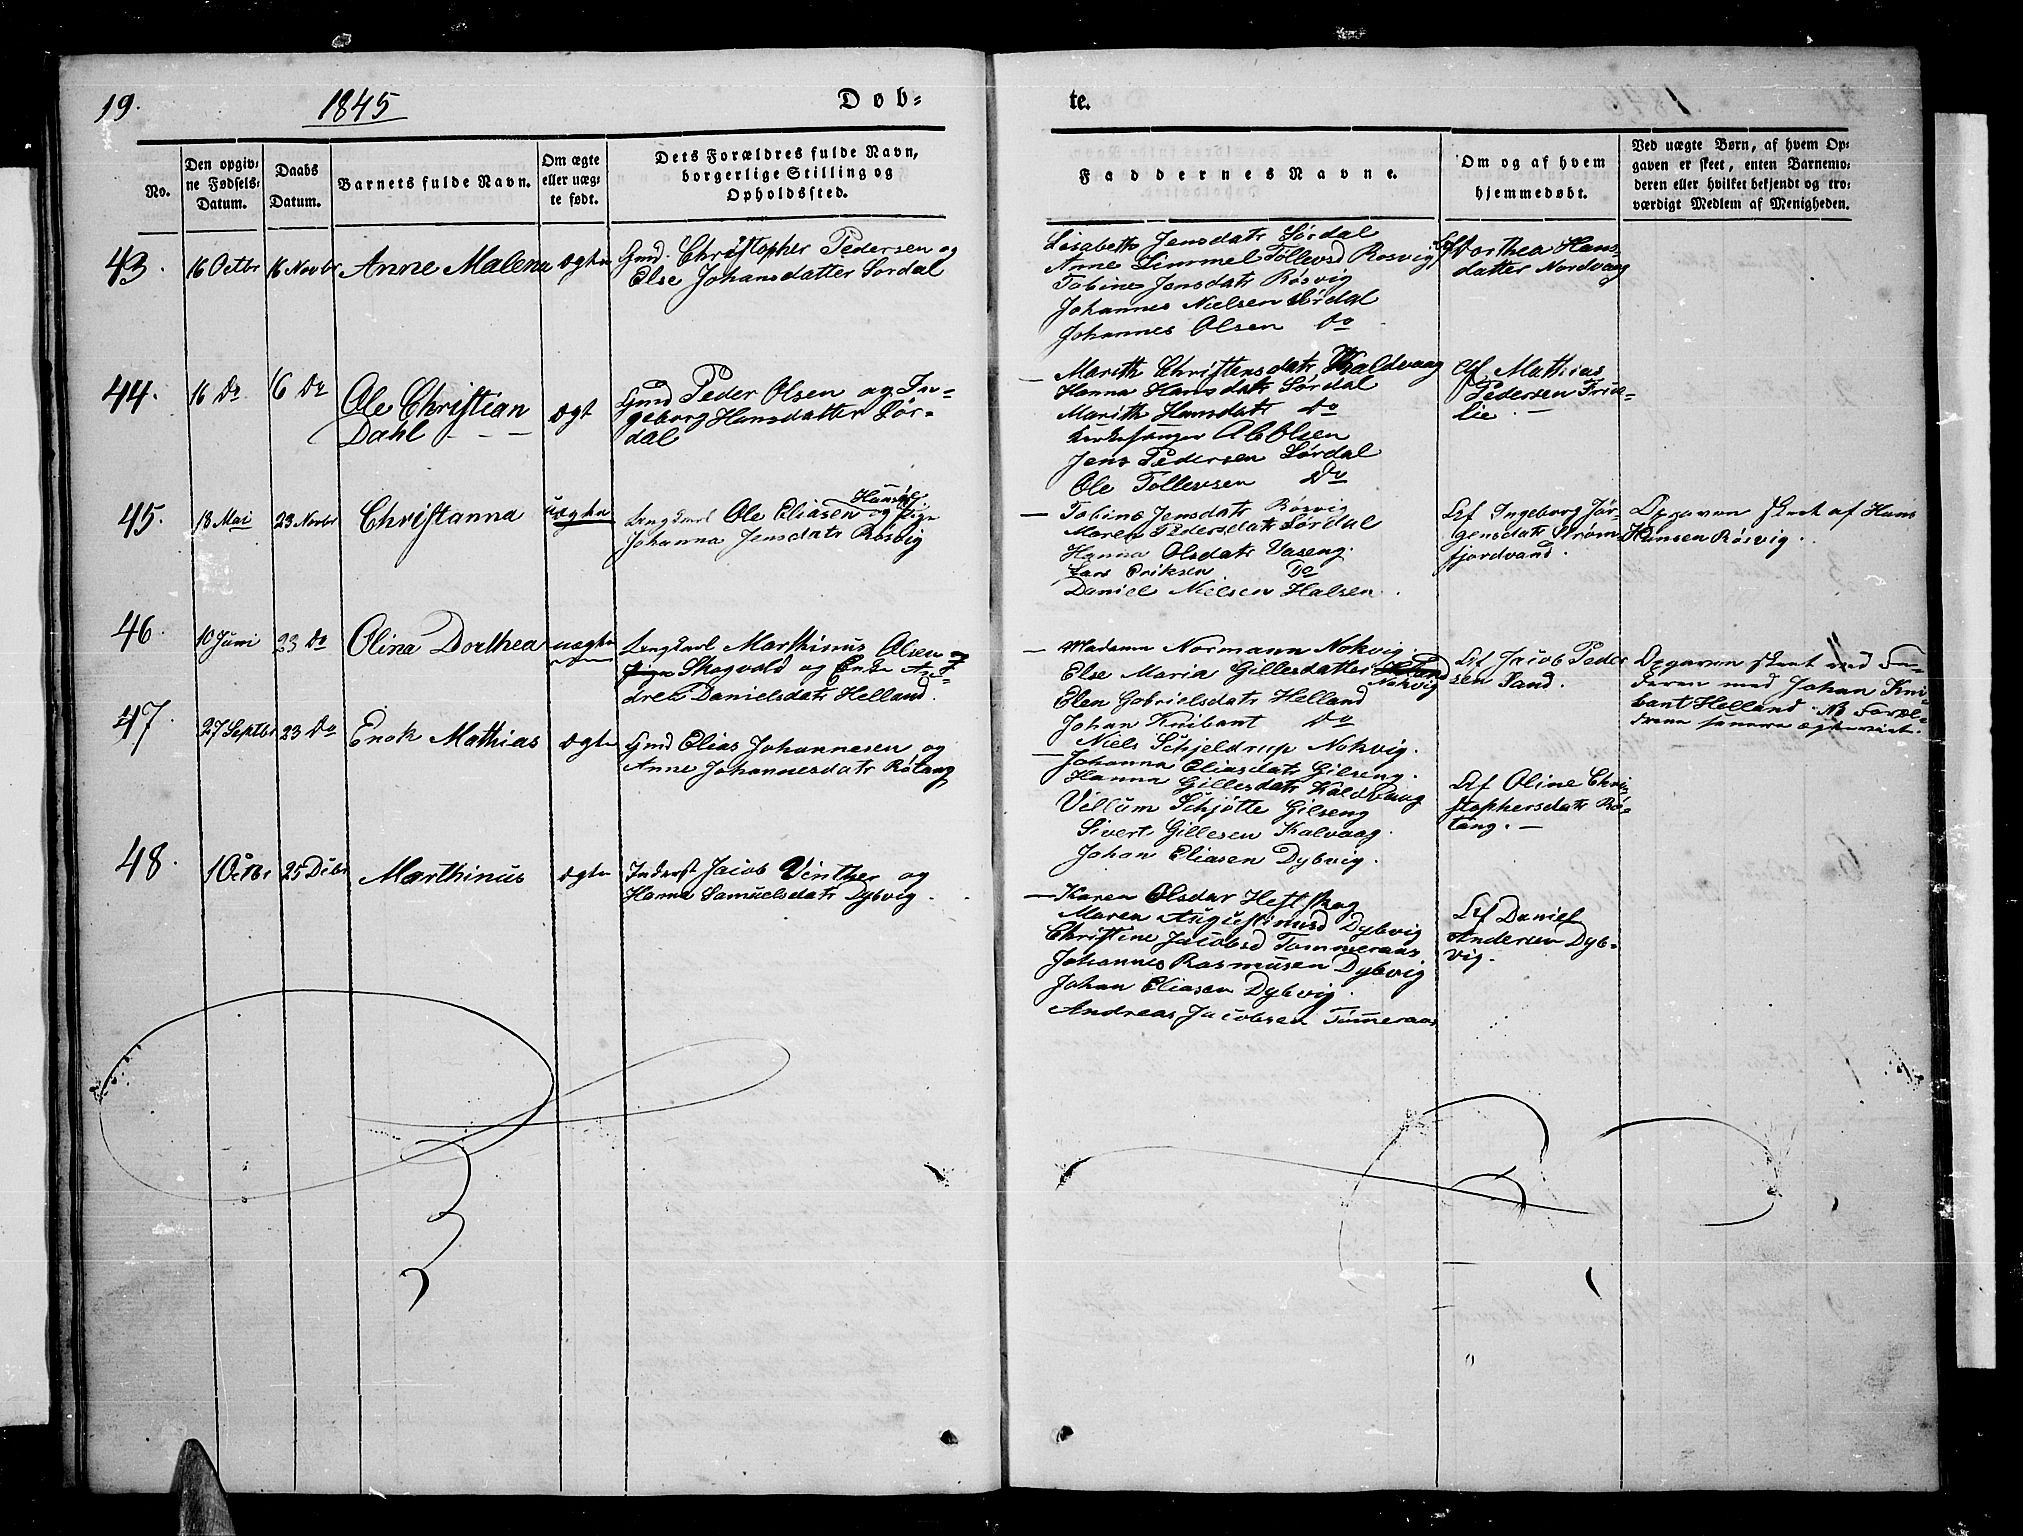 19.
1845
Døb-
te.
No.
Den opgiv-
ne Fødsels-
Datum.
Daabs
Datum.
Barnets fulde Navn.
Om ægte
eller uæg-
te født.
Dets Forældres fulde Navn,
borgerlige Stilling og
Opholdssted.
Faddernes Navne.
Om og af hvem
hjemmedøbt.
Ved uægte Børn, af hvem Op-
gaven er skeet, enten Barnemo-
deren eller hvilket bekjendt og tro-
værdigt Medlem af Menigheden.
43.
16 Octbr
16 Novbr
Anne Malena
ægte
Gmd. Christopher Pedersen og
Else Johansdatter Sørdal
Lisabeth Jensdatr Sørdal
Anne Simmel Tollevsd Rosvig
Tobine Jensdatr Røsvig
Johannes Nielsen Sørdal
Johannes Olsen Do
Af Dorthea Hans
datter Nordvaag
44.
16 Do
16 Do
Ole Christian
Dahl
ægt
Gmd Peder Olsen og In-
geborg Hansdatter Sør-
dal
Marith Christensdatr Kaldvaag
Hanna Hansdatr Sørdal
Marith Hansdatr Do
Kirkesanger Ab Olsen
Jens Pedersen Sørdal
Ole Tollevsen Do
Af Mathias
Pedersen Trid-
lie.
45.
18 Mai
23 Novbr
Christanna
uægte
Ungkarl Ole Eliasen og Pige
Johanna Jensdatr Røsvig
Tobine Jensdatr Røsvig
Maren Pedersdatr Sørdal
Hanna Olsdatr Vaseng.
Lars Eriksen Do
Daniel Nielsen Halsen.
Af Ingeborg Jør-
gensdatr Strøm-
fjordvand.
Opgaven skeet af Hans
Hansen Røsvig.
46.
10 Juni
23 Do
Olina Dorthea
uægte
Ungkarl Marthinus Olsen
Skogvold og Enke An-
drea Danielsdatr Helland.
Madame Normann Nokvig
Else Maria Gillesdatter
Nokvig
Elen Gabrielsdatr Helland
Johan Knibant Do
Niels Schjeldrup Nokvig.
Af Jacob Peder
sen Sand.
Opgaven skeet ved Fa-
deren med Johan Kni-
bant Helland. NB Foræl-
drene senere ægteviet.
47.
27 Septbr
23 Do
Enok Mathias
ægte
Gmd Elias Johannesen og
Anne Johannesdatr Røtang
Johanna Eliasdatr Gilseng.
Hanna Gillesdatr Kaldvaag
Villum Schjøtte Gilseng
Sivert Gillesen Kalvaag.
Johan Eliasen Dybvig.
Af Oline Chri
stophersdatr Rø-
tang.
48.
1 Octbr
25 Dcbr
Marthinus
ægte
Inderst Jacob Vinther og
Hanna Samuelsdatr Dybvig.
Karen Olsdar Heftskog
Maren Augustinusd Dybvig
Christine Jacobsd Tømmeraas
Johannes Rasmusen Dybvig
Johan Eliasen Dybvig.
Andreas Jacobsen Tømmeraas
Af Daniel
Andersen Dyb-
vig.